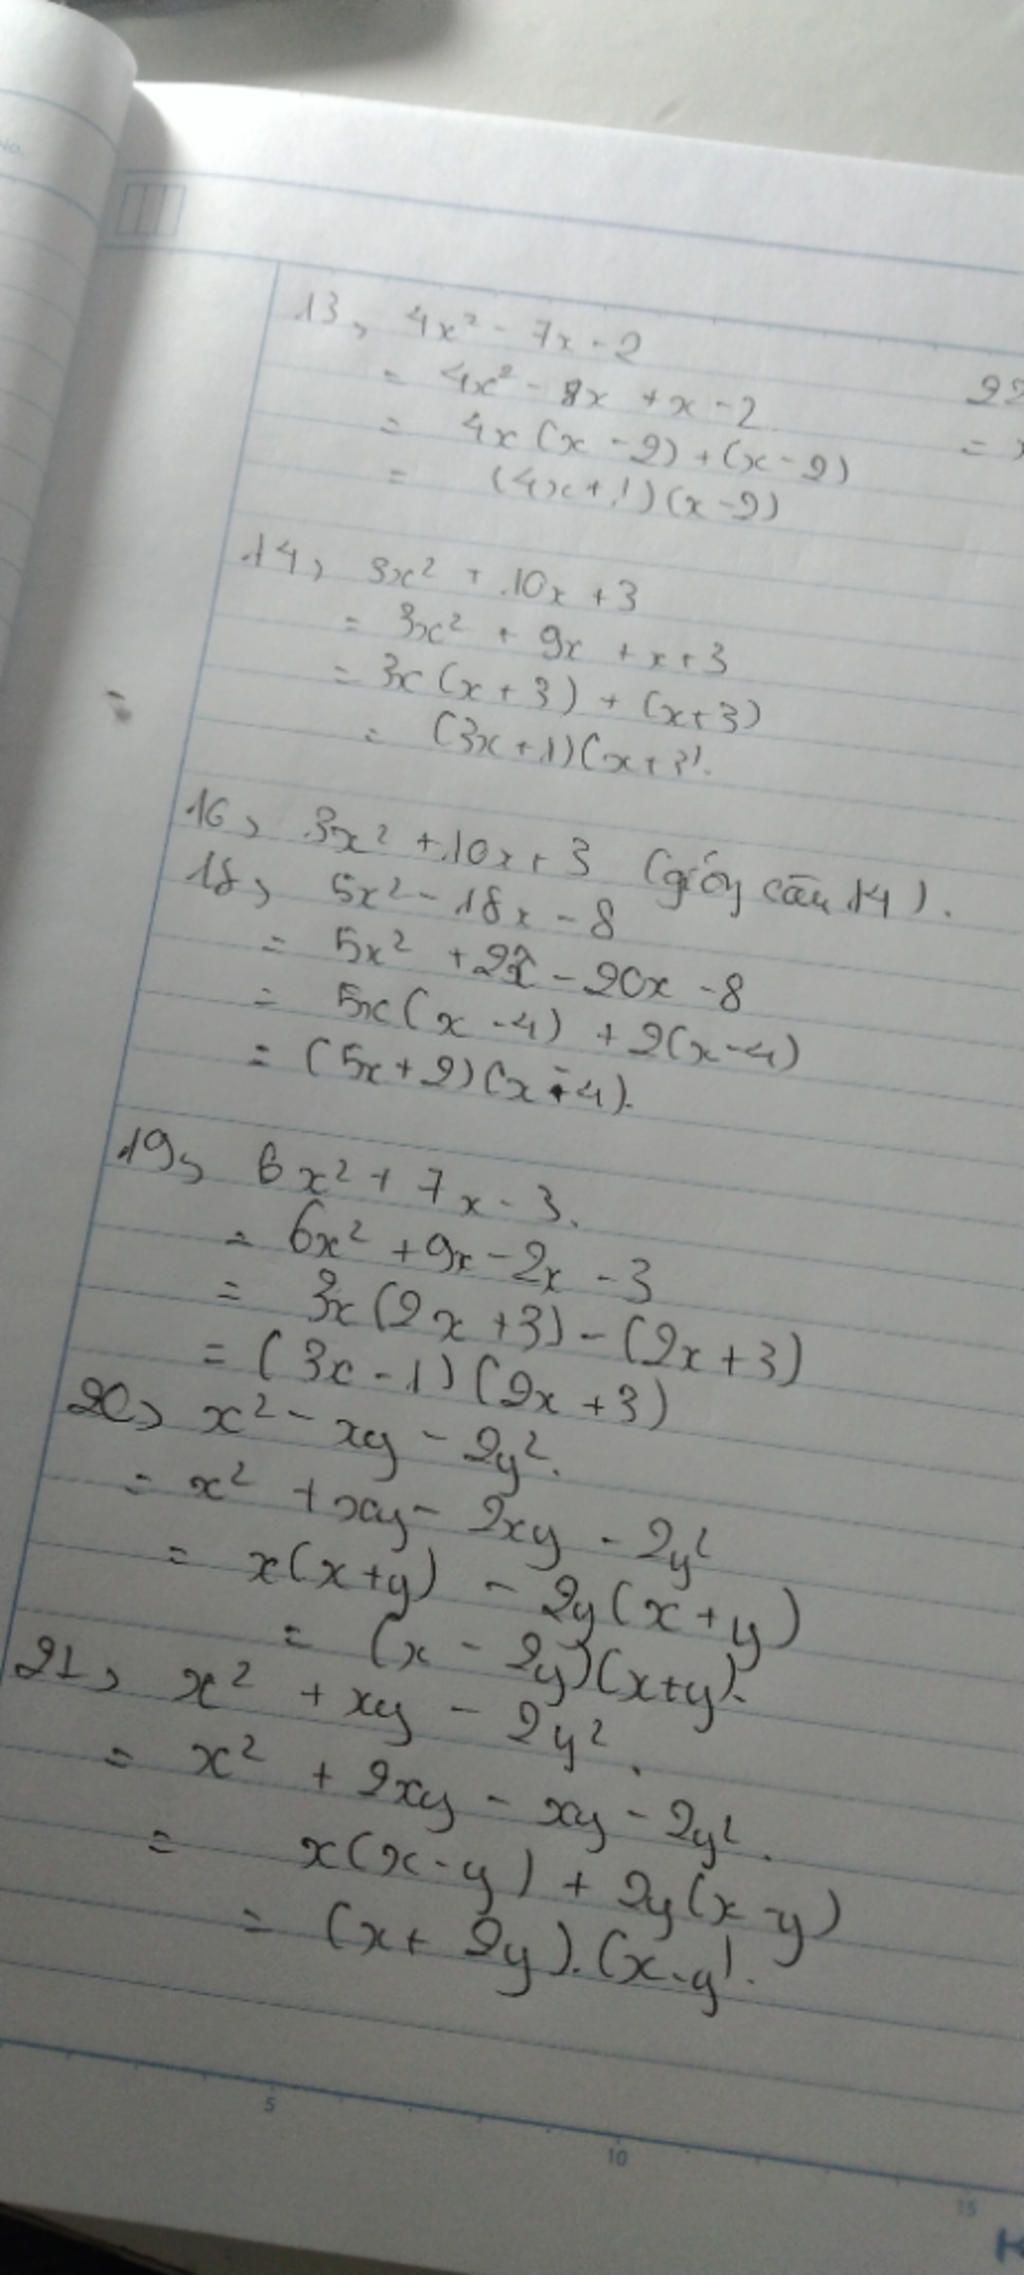 No.
13, 4x² - 7x - 2
= 4x² - 8x + x - 2
= 4x(x - 2) + (x - 2)
= (4x + 1)(x - 2)
14, 3x² + 10x + 3
= 3x² + 9x + x + 3
= 3x(x + 3) + (x + 3)
= (3x + 1)(x + 3).
16, 3x² + 10x + 3 (giống câu 14).
18, 5x² - 18x - 8
= 5x² + 2x - 20x - 8
= 5x(x - 4) + 2(x - 4)
= (5x + 2)(x - 4).
19, 6x² + 7x - 3.
= 6x² + 9x - 2x - 3
= 3x(2x + 3) - (2x + 3)
= (3x - 1)(2x + 3)
20, x² - xy - 2y².
= x² + xy - 2xy - 2y²
= x(x + y) - 2y(x + y)
= (x - 2y)(x + y).
21, x² + xy - 2y².
= x² + 2xy - xy - 2y².
= x(x - y) + 2y(x - y)
= (x + 2y).(x - y).
22
=
5 10 15
K